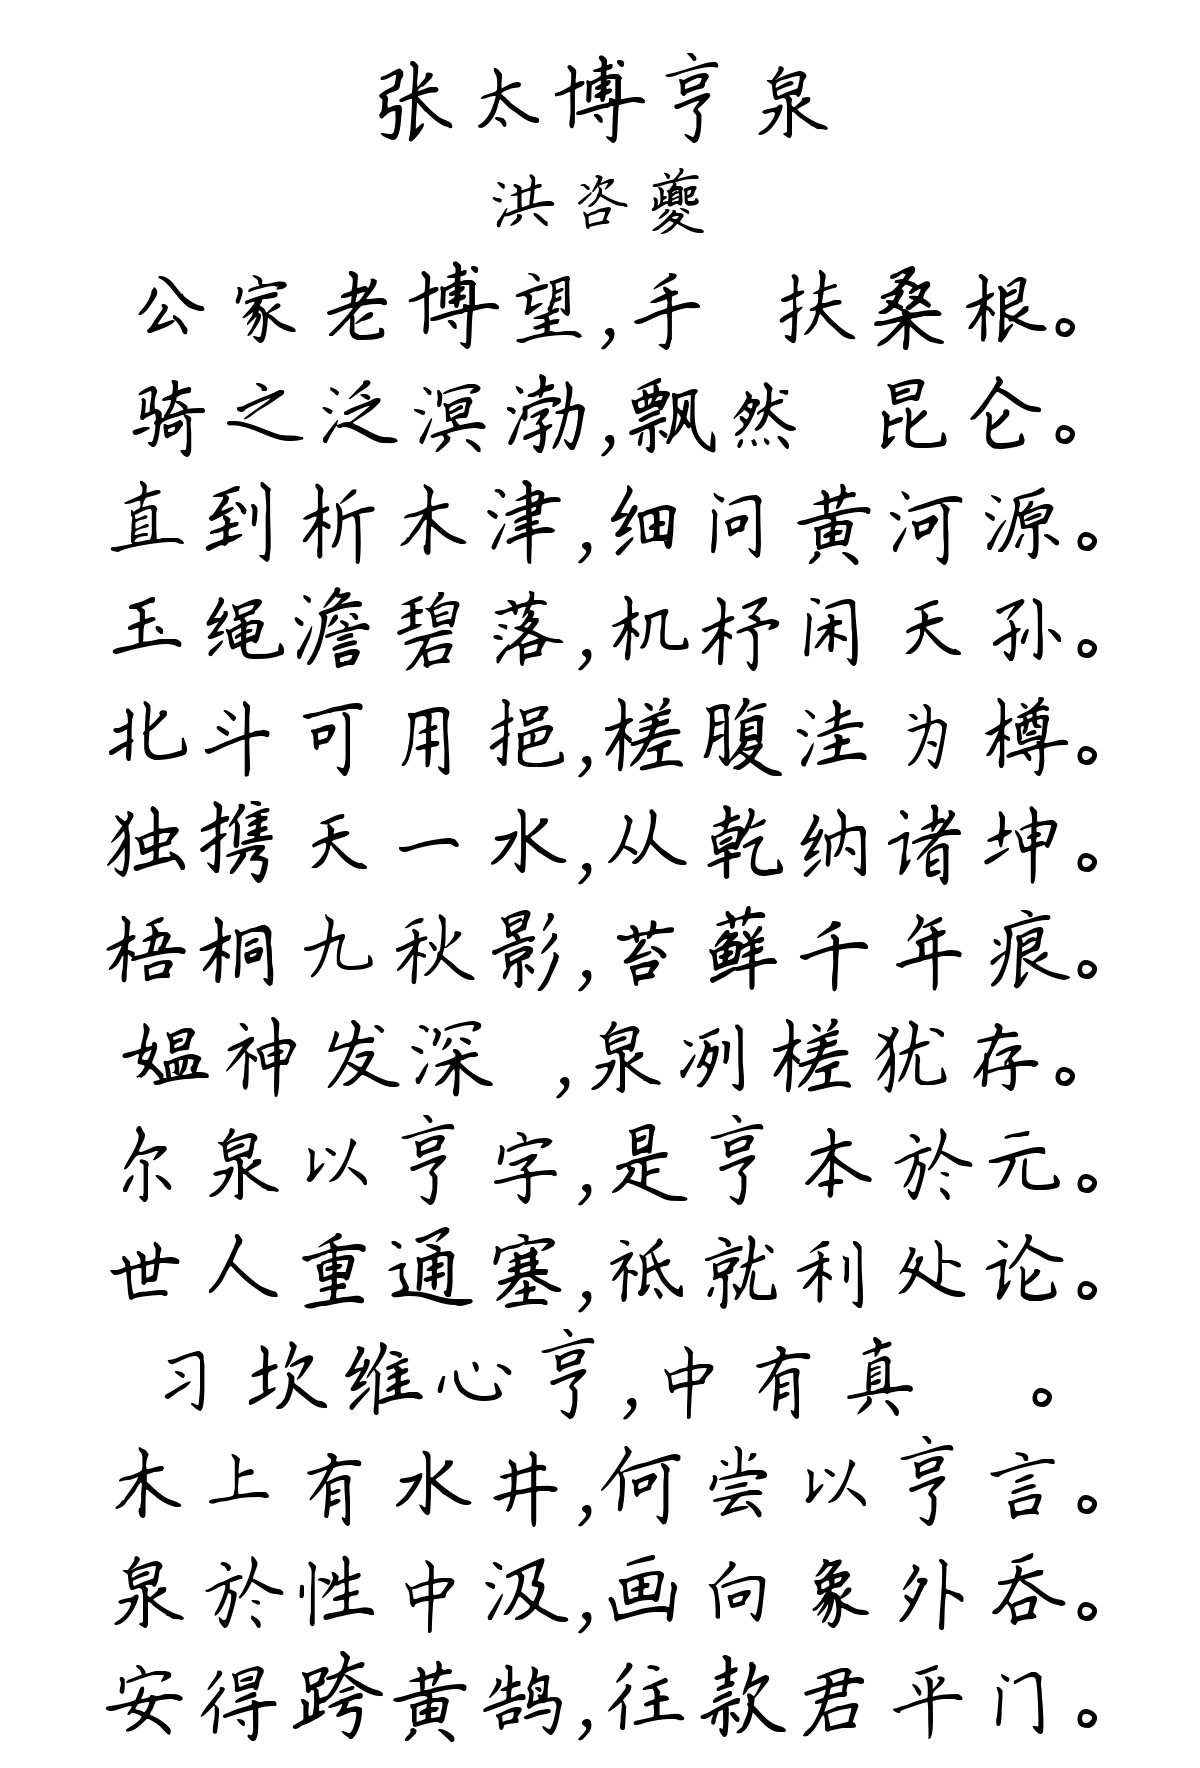 张太博亨泉
洪咨夔
公家老博望,手 扶桑根。
骑之泛溟渤,飘然 昆仑。
直到析木津,细问黄河源。
玉绳澹碧落,机杼闲天孙。
北斗可用挹,槎腹洼为樽。
独携天一水,从乾纳诸坤。
梧桐九秋影,苔藓千年痕。
媪神发深 ,泉冽槎犹存。
尔泉以亨字,是亨本於元。
世人重通塞,祗就利处论。
习坎维心亨,中有真 。
木上有水井,何尝以亨言。
泉於性中汲,画向象外吞。
安得跨黄鹄,往款君平门。